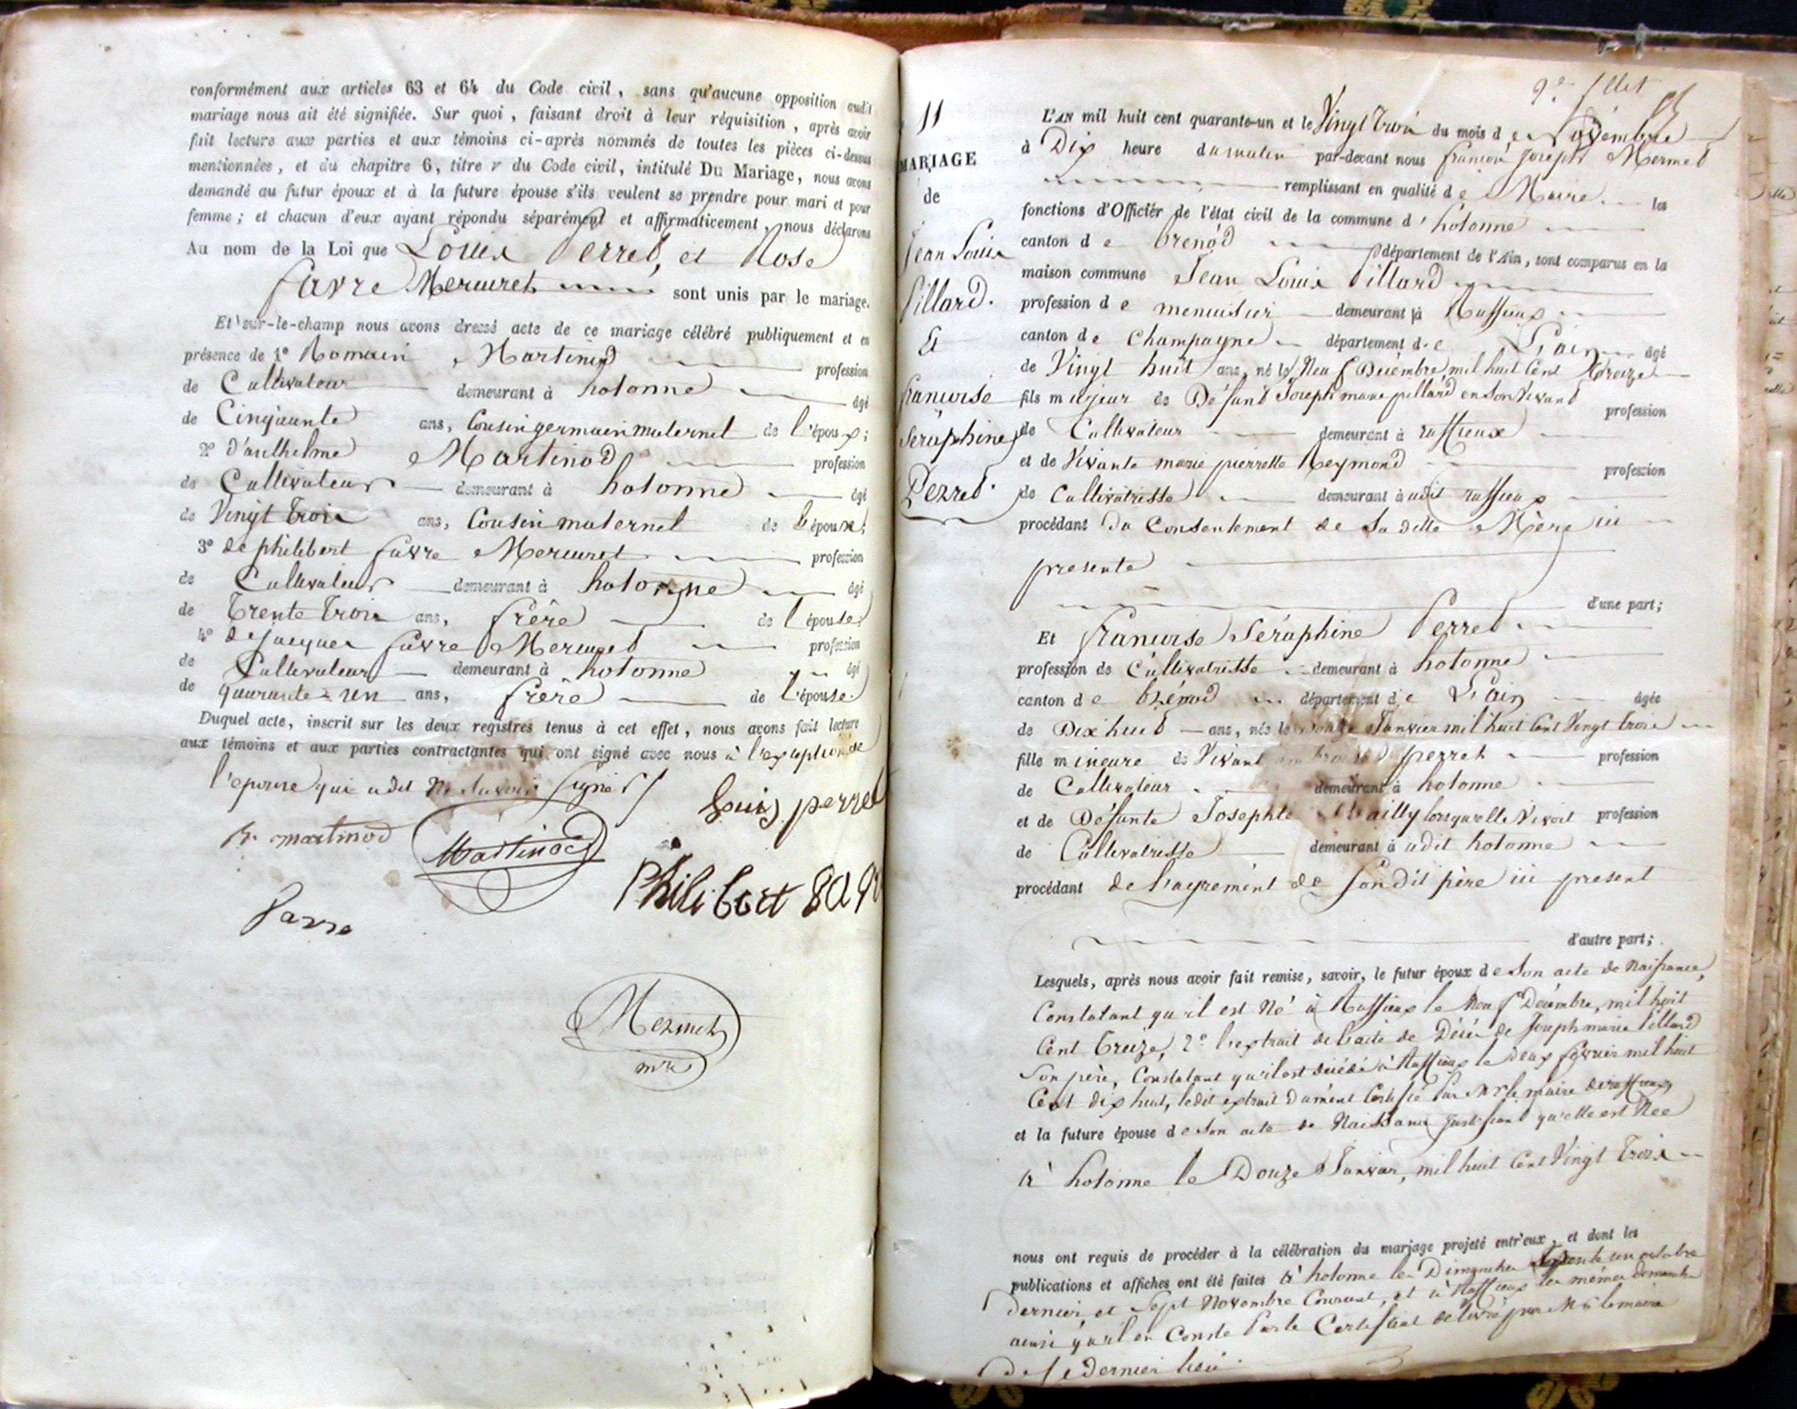 conformément aux articles 63 et 64 du Code civil, sans qu'aucune opposition audit
mariage nous ait été signifiée. Sur quoi, faisant droit à leur réquisition, après avoir
fait lecture aux parties et aux témoins ci-après nommés de toutes les pièces ci-dessus
mentionnées, et du chapitre 6, titre v du Code civil, intitulé Du Mariage, nous avons
demandé au futur époux et à la future épouse s'ils veulent se prendre pour mari et pour
femme; et chacun d'eux ayant répondu séparément et affirmativement, nous déclarons
Au nom de la Loi que Louis Perret, et Rose
favre Mercuret sont unis par le mariage.
Et sur-le-champ nous avons dressé acte de ce mariage célébré publiquement et en
présence de 1º Romain Martinod profession
de Cultivateur demeurant à hotonne âgé
de Cinquante ans, Cousin germain maternel de l'époux;
2º d'anthelme Martinod profession
de Cultivateur demeurant à hotonne âgé
de Vingt Trois ans, Cousin maternel de l'époux;
3º de philibert favre Mercuret profession
de Cultivateur demeurant à hotonne âgé
de Trente Trois ans, frère de l'épouse
4º de jacques favre Mercuret profession
de Cultivateur demeurant à hotonne âgé
de quarante-un ans, frère de l'épouse.
Duquel acte, inscrit sur les deux registres tenus à cet effet, nous avons fait lecture
aux témoins et aux parties contractantes qui ont signé avec nous à l'exception de
l'épouse qui a dit ne savoir signer
Louis perret
R. martinod
Martinod
Philibert
favre
Mermet
mre
9e fllet
11
MARIAGE
de
Jean Louis
Pillard.
&
francoise
Séraphine
Perret.
L'AN mil huit cent quarante-un et le Vingt Trois du mois de Novembre
à Dix heure du matin par-devant nous francois joseph Mermet
remplissant en qualité de Maire les
fonctions d'Officier de l'état civil de la commune d'hotonne
canton de brenod département de l'Ain, sont comparus en la
maison commune Jean Louis Pillard
profession de menuisier demeurant à Ruffieux
canton de Champagne département de L'ain âgé
de Vingt huit ans, né le Neuf Décembre mil huit Cent Treize
fils majeur de Défunt Joseph marie pillard en son Vivant profession
de Cultivateur demeurant à ruffieux
et de Vivante marie pierrette Reymond profession
de Cultivatrisse demeurant à udit ruffieux
procédant du Consentement de sa ditte Mère ici
présente
d'une part;
Et francoise Séraphine Perret
profession de Cultivatrisse demeurant à hotonne
canton de brénod département de L'ain âgée
de Dix huit ans, née le Douze Janvier mil huit Cent Vingt Trois
fille mineure de Vivant perret profession
de Cultivateur demeurant à hotonne
et de Défunte Josephte Mailly lorsqu'elle Vivoit profession
de Cultivatrisse demeurant à udit hotonne
procédant de L'agrément de son dit père ici présent
d'autre part;
Lesquels, après nous avoir fait remise, savoir, le futur époux de Son acte de Naissance,
Constatant qu'il est Né à Ruffieux le Neuf Décembre, mil huit
Cent Treize, 2º l'extrait de l'acte de Décès de Joseph marie Pillard
Son père, Constatant qu'il est décédé à Ruffieux le Deux février mil huit
Cent dix huit, ledit extrait dument Certifié Par Mr le maire de ruffieux,
et la future épouse de Son acte de Naissance Justifiant qu'elle est Née
à hotonne le Douze Janvier, mil huit Cent Vingt Trois
nous ont requis de procéder à la célébration du mariage projeté entr'eux, et dont les
publications et affiches ont été faites à hotonne les Dimanches Trente un octobre
dernier et Sept Novembre Courant, et à Ruffieux les mêmes dimanches
ainsi qu'il en Conste Par le Certificat délivré par Mr le maire
de ce dernier lieu.